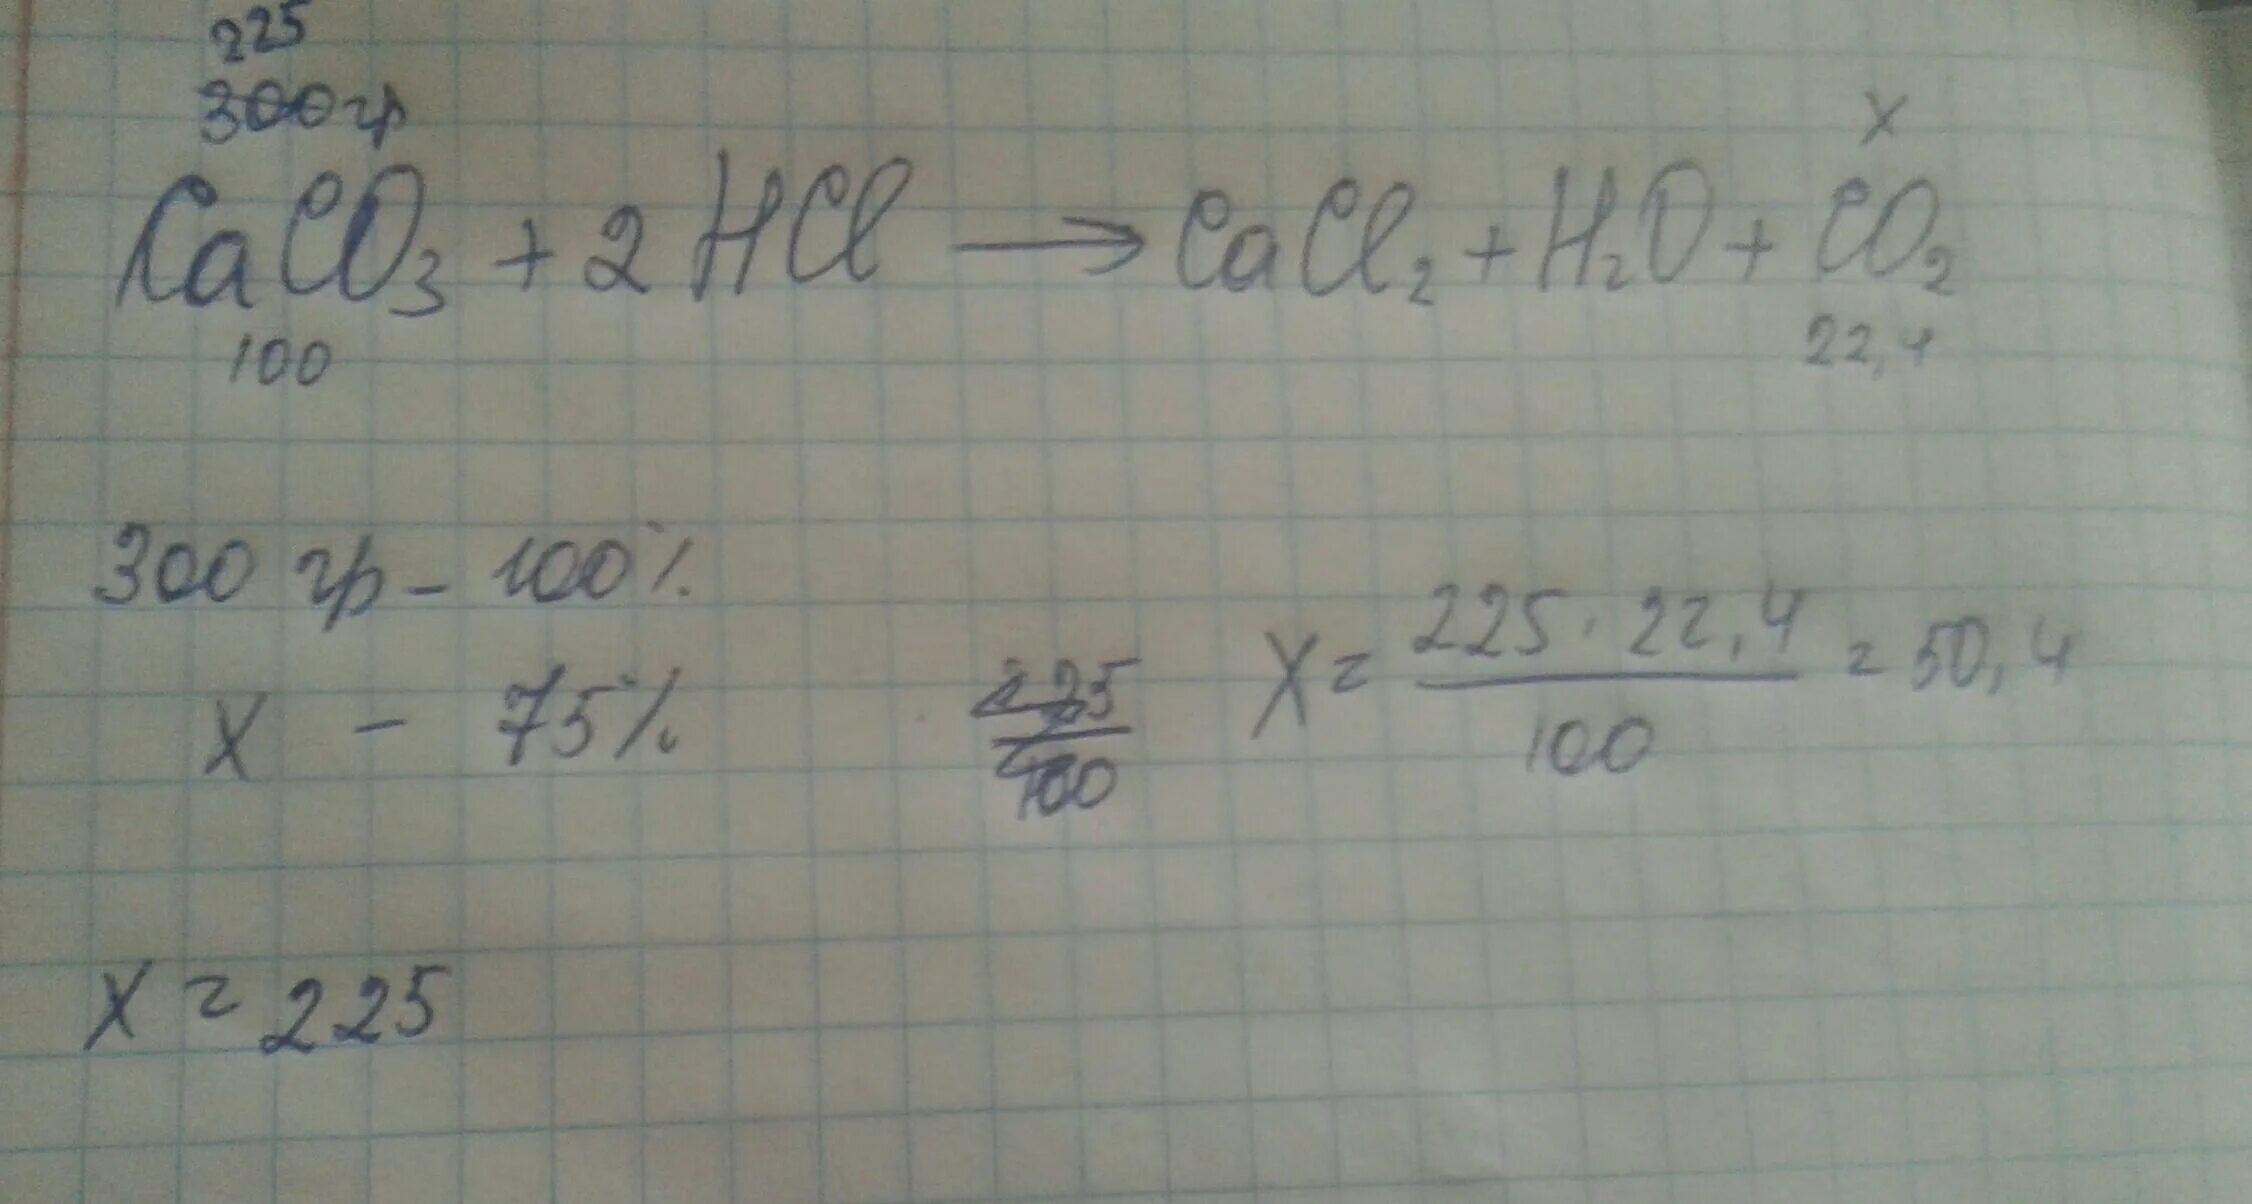 225
300 гр
x
CaCO₃ + 2 HCl → CaCl₂ + H₂O + CO₂
100 22,4
300 гр - 100%
x - 75%
225/100
x = 225 · 22,4 / 100 = 50,4
x = 225